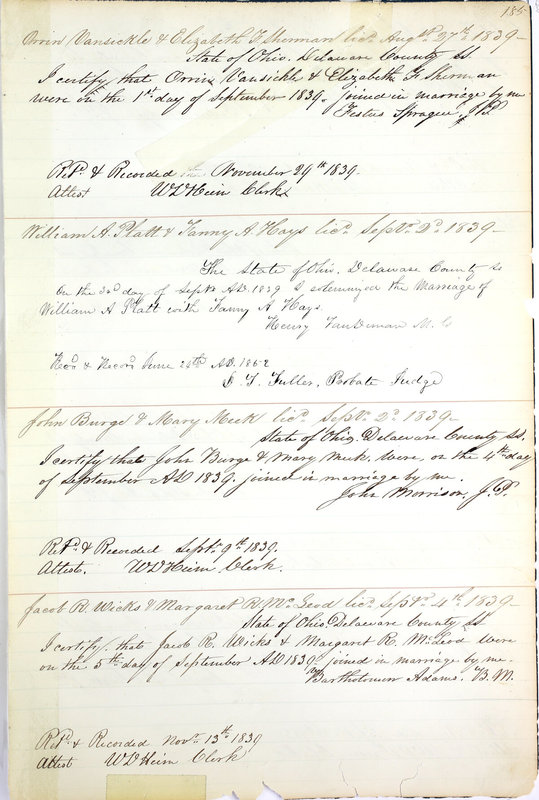 185
Orrin Vansickle & Elizabeth F Sherman licd. Augst. 27th 1839
State of Ohio. Delaware County SS.
I certify that Orrin Vansickle & Elizabeth F. Sherman
were on the 1st day of September 1839. joined in marriage by me
Festus Sprague, JP.
Retd. & Recorded November 29th 1839
Attest W D Heim Clerk
William A. Platt & Fanny A Hays licd. Septr. 2d. 1839
The State of Ohio. Delaware County SS
On the day of Sept. A.D. 1839 I solemnized the Marriage of
William A Platt with Fanny A Hays
Henry VanDeman M. G
Recd & Record June 24th A.D. 1862
T. Fuller, Probate Judge
John Burge & Mary Meek licd. Septr. 2d. 1839
State of Ohio. Delaware County SS.
I certify that John Burge & Mary Meek. Were, on the 4th day
of September AD 1839. joined in marriage by me.
John Morrison, J.P.
Retd. & Recorded Septr. 9th. 1839.
Attest. W D Heim Clerk.
Jacob R. Wicks & Margaret R. McLeod licd. Septr. 4th. 1839
State of Ohio Delaware County SS
I certify, that Jacob R. Wicks & Margaret R. McLeod Were
on the 5th day of September AD 1839 joined in marriage by me.
Bartholomew Adams. V. M.
Retd. & Recorded Novr. 13th. 1839
Attest W D Heim Clerk